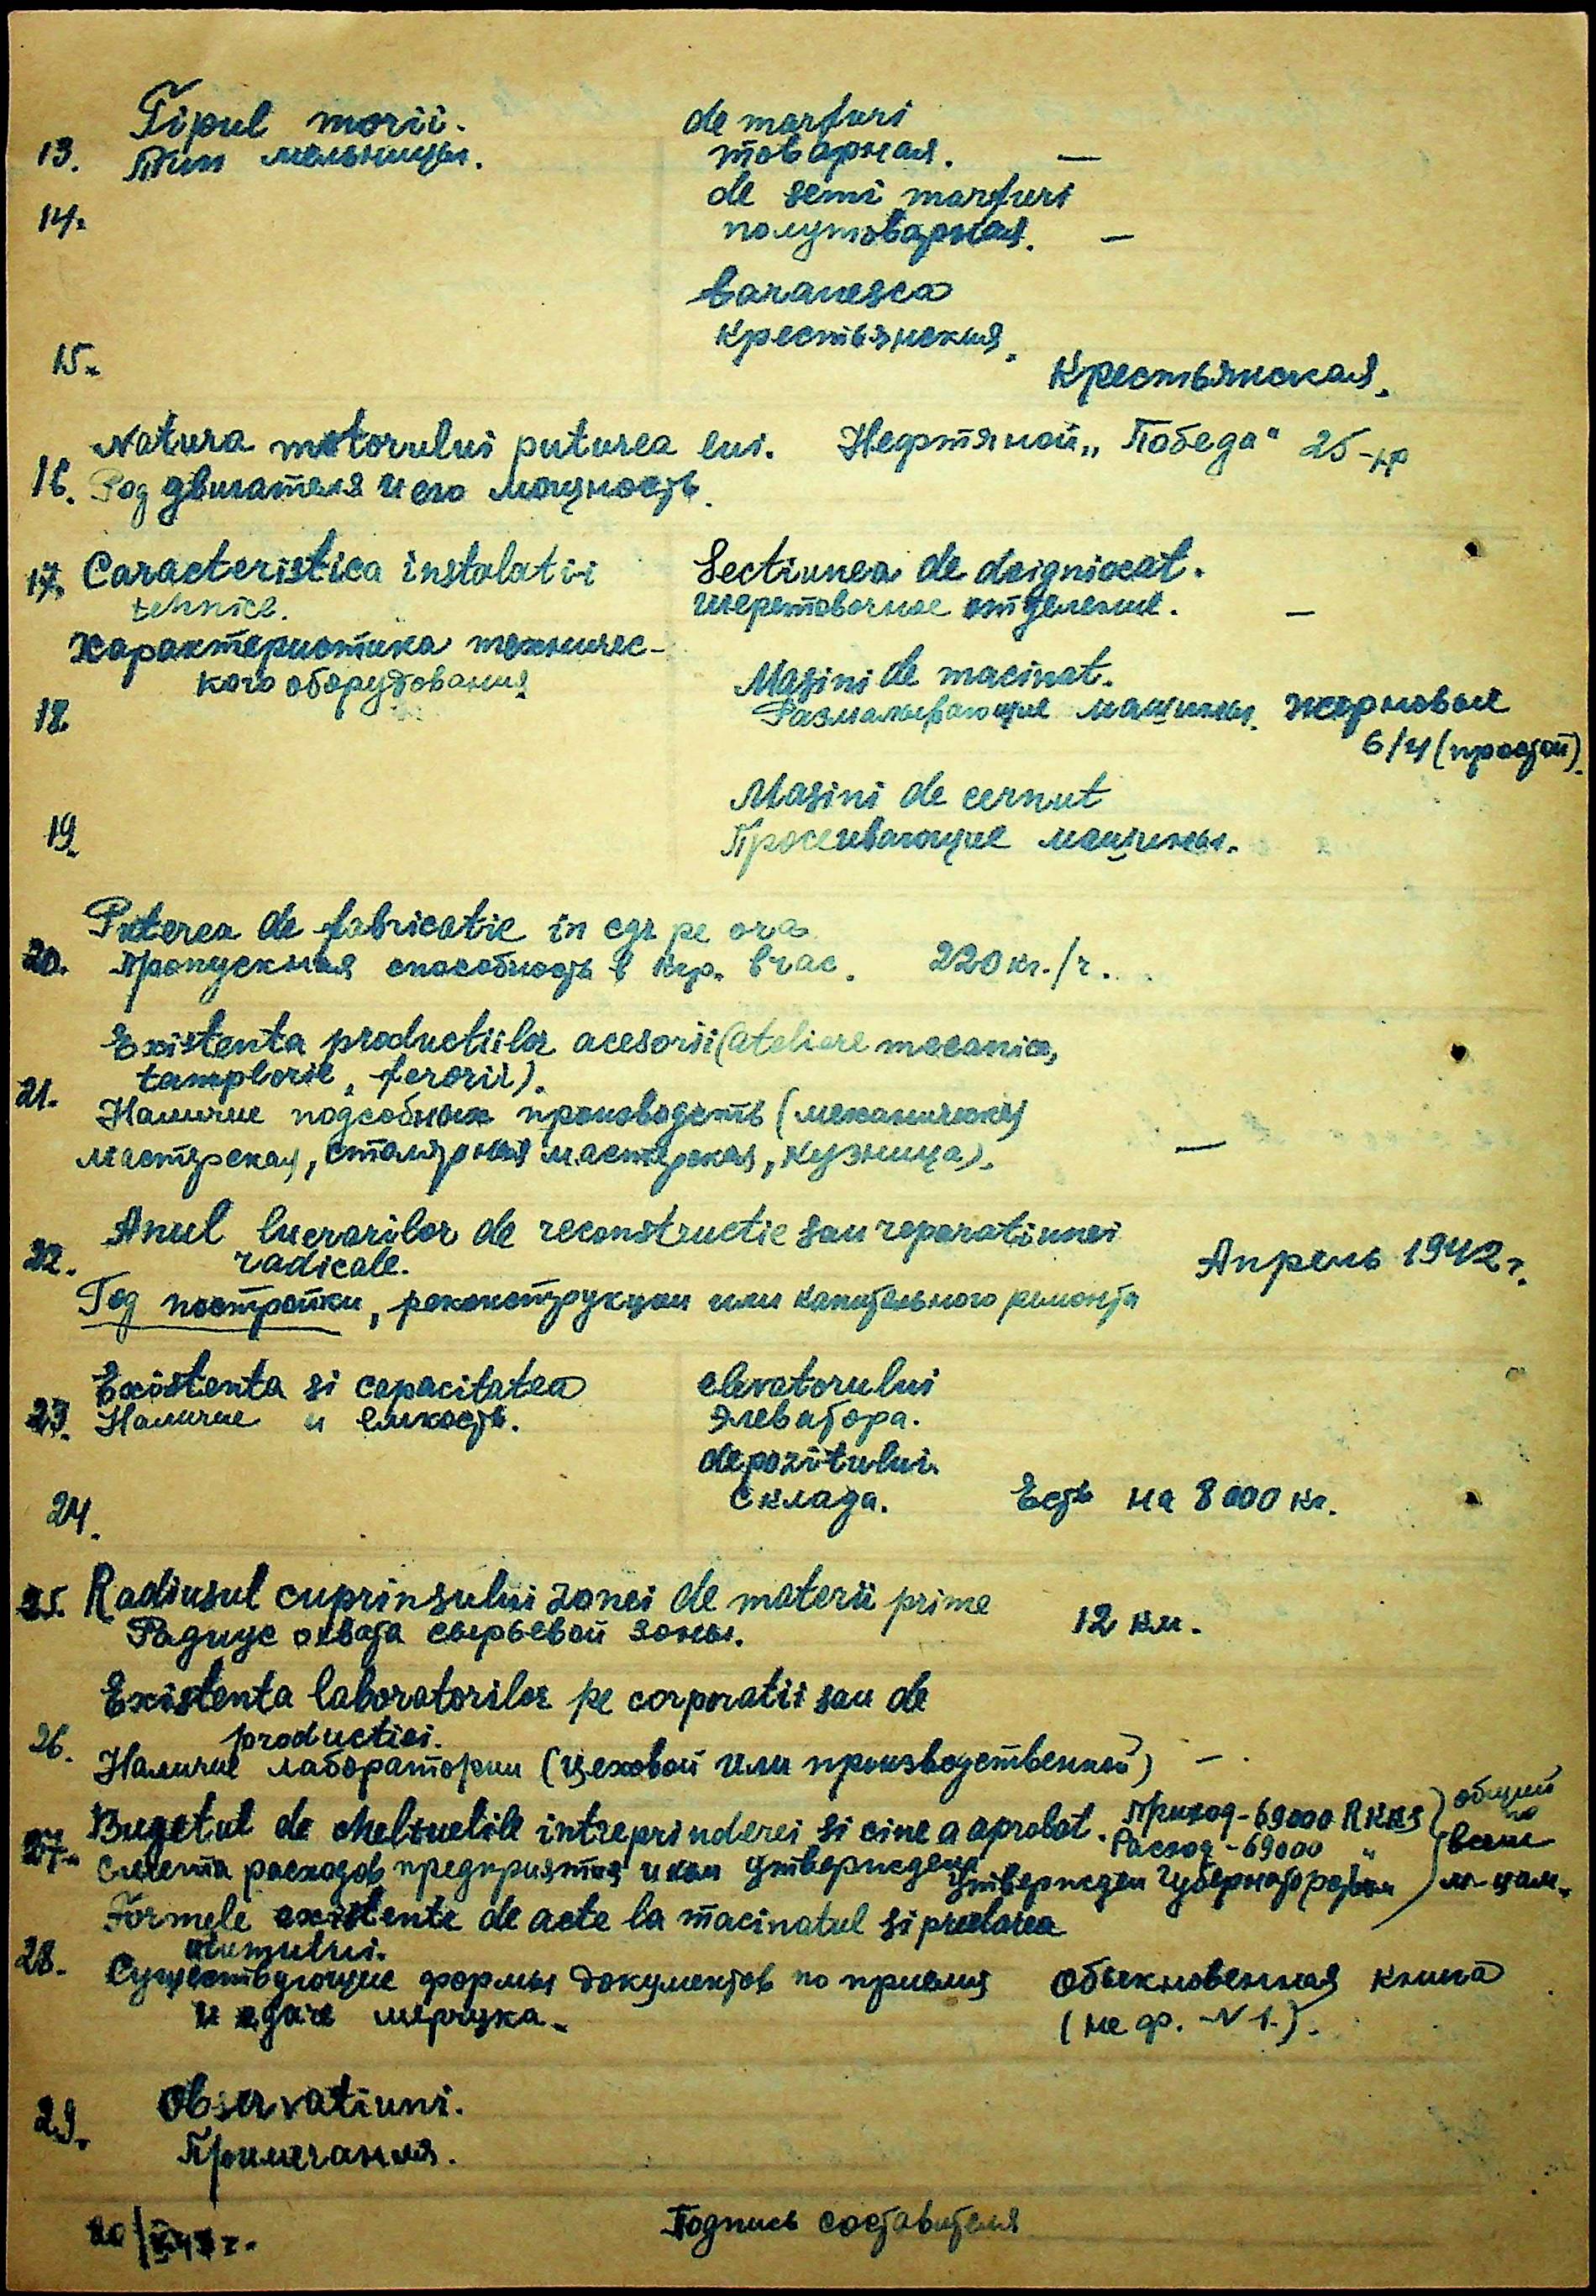 Tipul morii. de marfuri
13. Тип мельницы. товарная. —
de semi marfuri
14. полутоварная. —
taranesca
крестьянская.
15. Крестьянская.
Natura motorului puturea lui. Нефтяной „Победа" 25-
16. Род двигателя и его мощность.
17. Caracteristica instalatii Sectiunea de
tehnice. отделение. —
Характеристика техничес-
кого оборудования Masini de macinat.
18. Размалывающие машины. жерновые
6/4 (простой).
Masini de cernut
19. Просеивающие машины.
Puterea de fabricatie in cgr pe ora
20. Пропускная способность в кгр. в час. 220 кг./ч.
Existenta productiilor acesorii (ateliere mecanice,
21. tamplorie, ferorii).
Наличие подсобных производств (механическая
мастерская, столярная мастерская, кузница). —
Anul lucrarilor de reconstructie sau reparatiunei
22. radicale. Апрель 1942 г.
Год постройки, реконструкции или капитального ремонта
Existenta si capacitatea elevatorului
23. Наличие и емкость. элеватора.
depozitului.
24. склада. Есть на 8000 кг.
25. Radiusul cuprinsului zonei de materii prime
Радиус охвата сырьевой зоны. 12 км.
Existenta laboratorilor pe corporatii sau de
26. productiei.
Наличие лаборатории (цеховой или производственной) —
27. Bugetul de cheltuelile intreprinderei si cine a aprobat. Приход-69000 RKKS общий
Расход-69000 " по
Смета расходов предприятия и кем утверждена всем
утвержден м-цам.
Formele existente de acte la macinatul si predarea
28. uiumului.
Существующие формы документов по приемке обыкновенная книга
и сдаче мерчука. (не ф. N 1.).
29. Observatiuni.
Примечания.
Подпись составителя